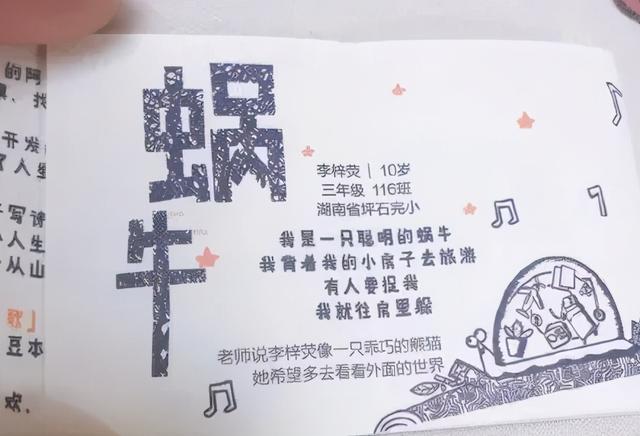 的阿
找
开发
人
写诗
人生
从山
豆本
欢.
蜗
牛
李梓荧 | 10岁
三年级 116班
湖南省坪石完小
我是一只聪明的蜗牛
我背着我的小房子去旅游
有人要捉我
我就往房里躲
老师说李梓荧像一只乖巧的熊猫
她希望多去看看外面的世界